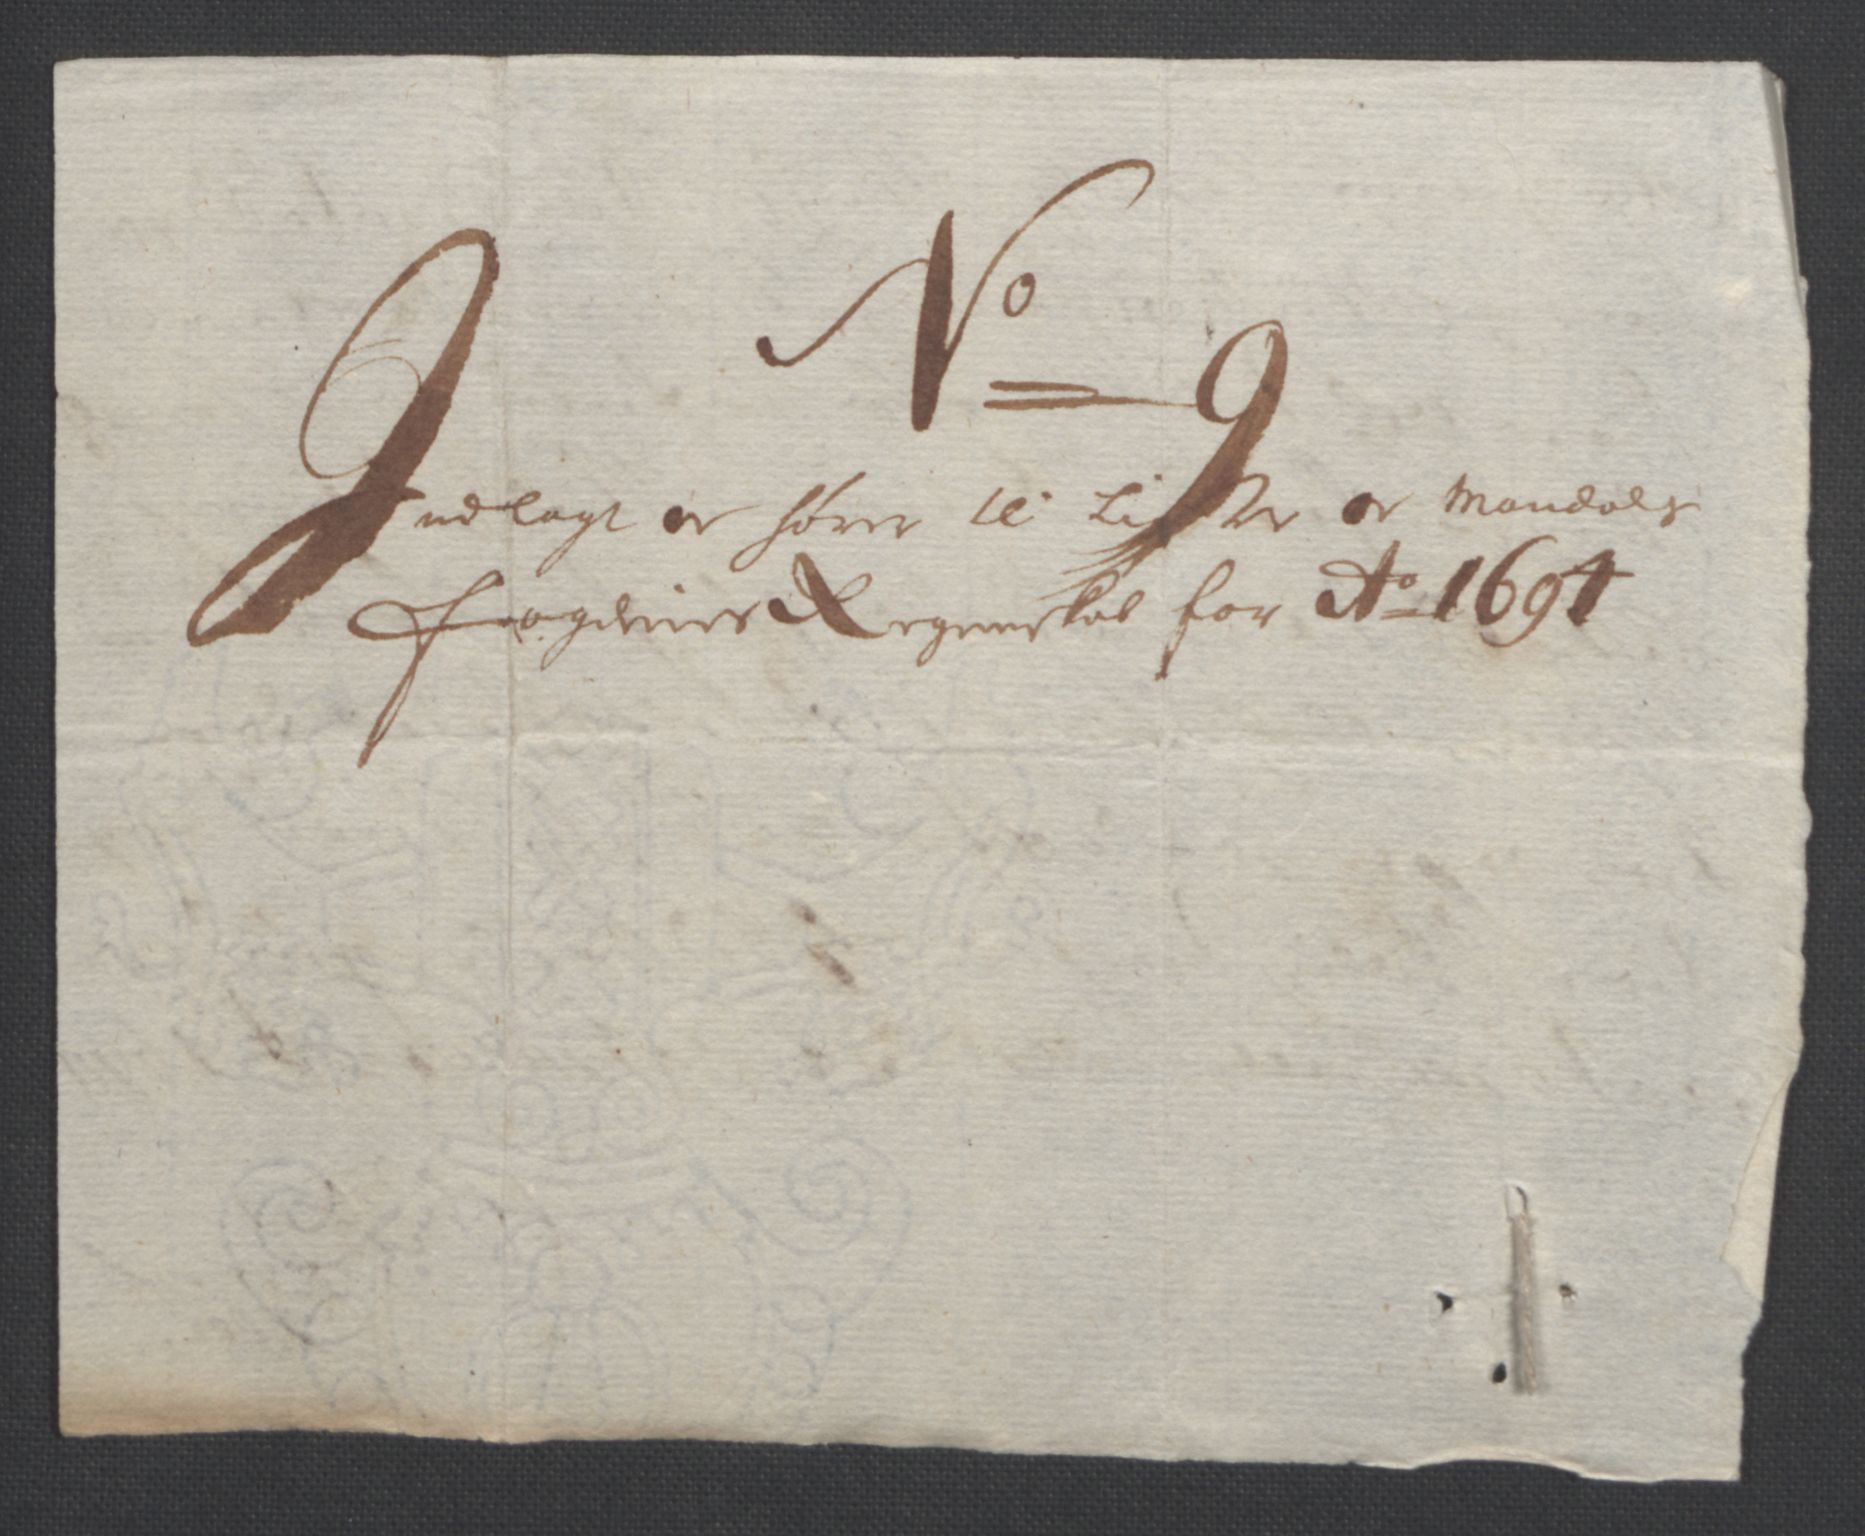 No 9
Indlagt og hører til Lister og Mandals
fogderies Regenskab for Ao 1694